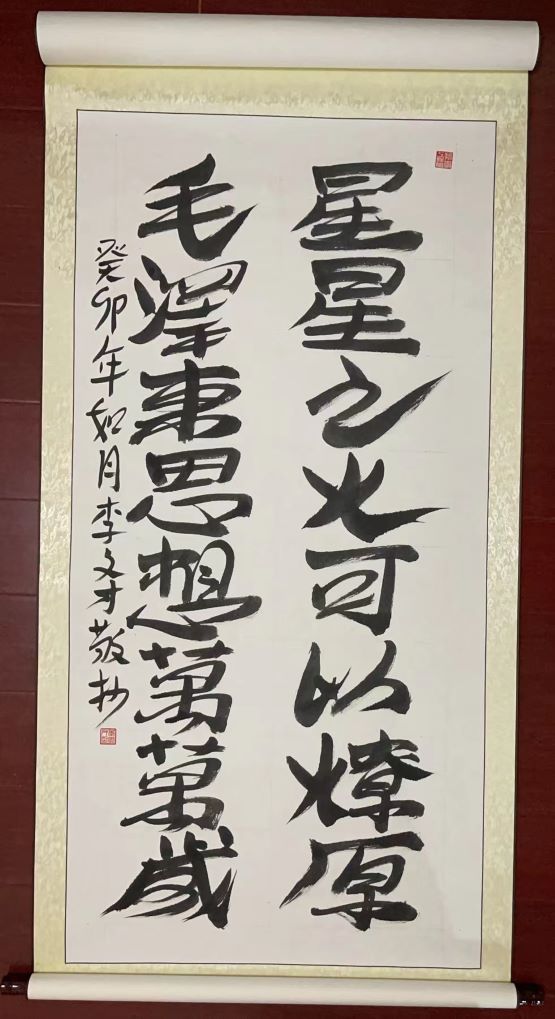 星星之火可以燎原
毛澤東思想萬萬歲
癸卯年如月李文才敬抄